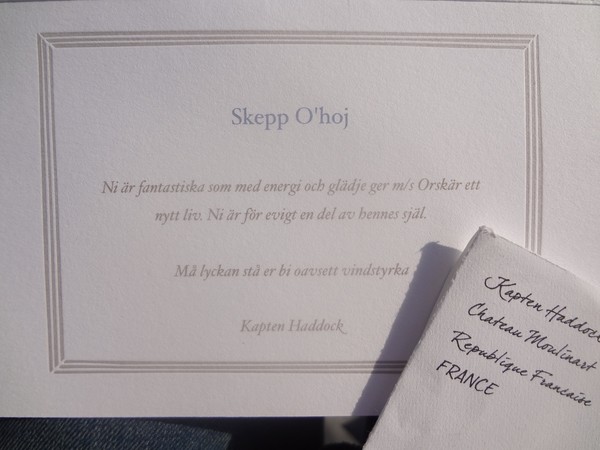 Skepp O'hoj
Ni är fantastiska som med energi och glädje ger m/s Orskär ett
nytt liv. Ni är för evigt en del av hennes själ.
Må lyckan stå er bi oavsett vindstyrka
Kapten Haddock
Kapten Haddock
Chateau Moulinart
Republique Francaise
FRANCE